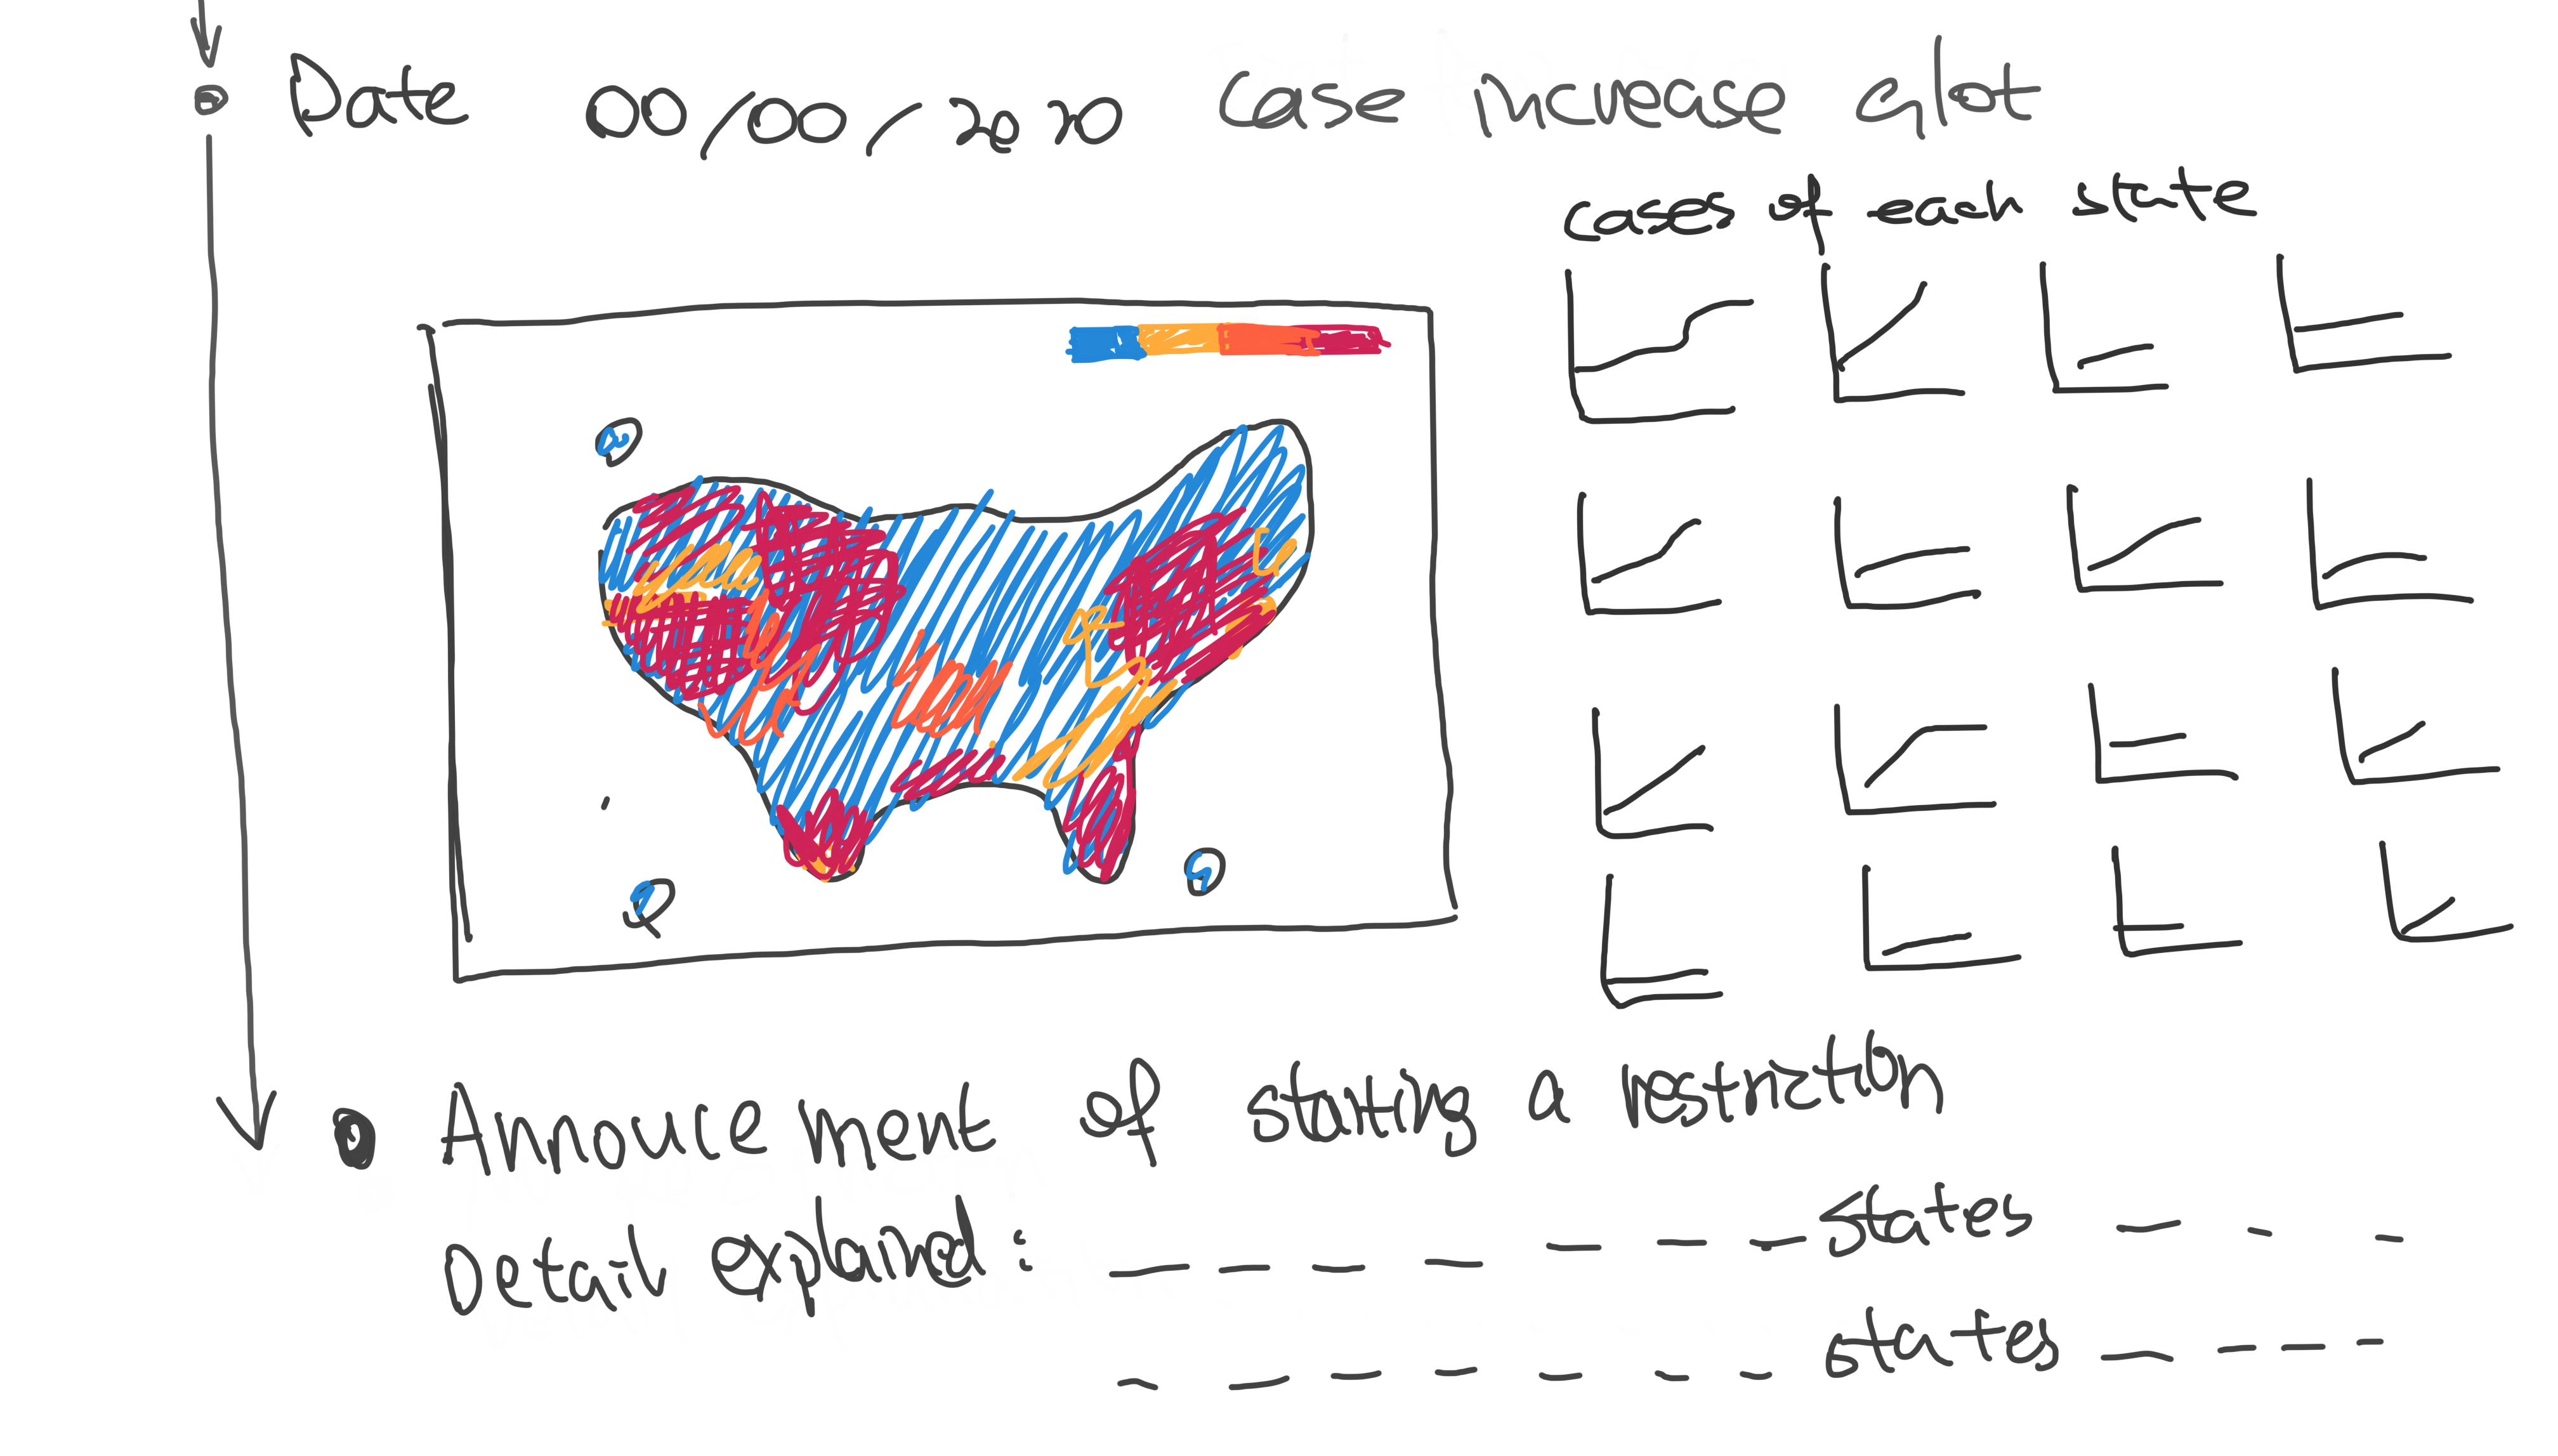 Date 00/00/2020 case increase alot
cases of each state
Annoucement of starting a restriction
Detail explained : _ _ _ _ _ _ _ states _ _ _
_ _ _ _ _ _ _ states _ _ _ _